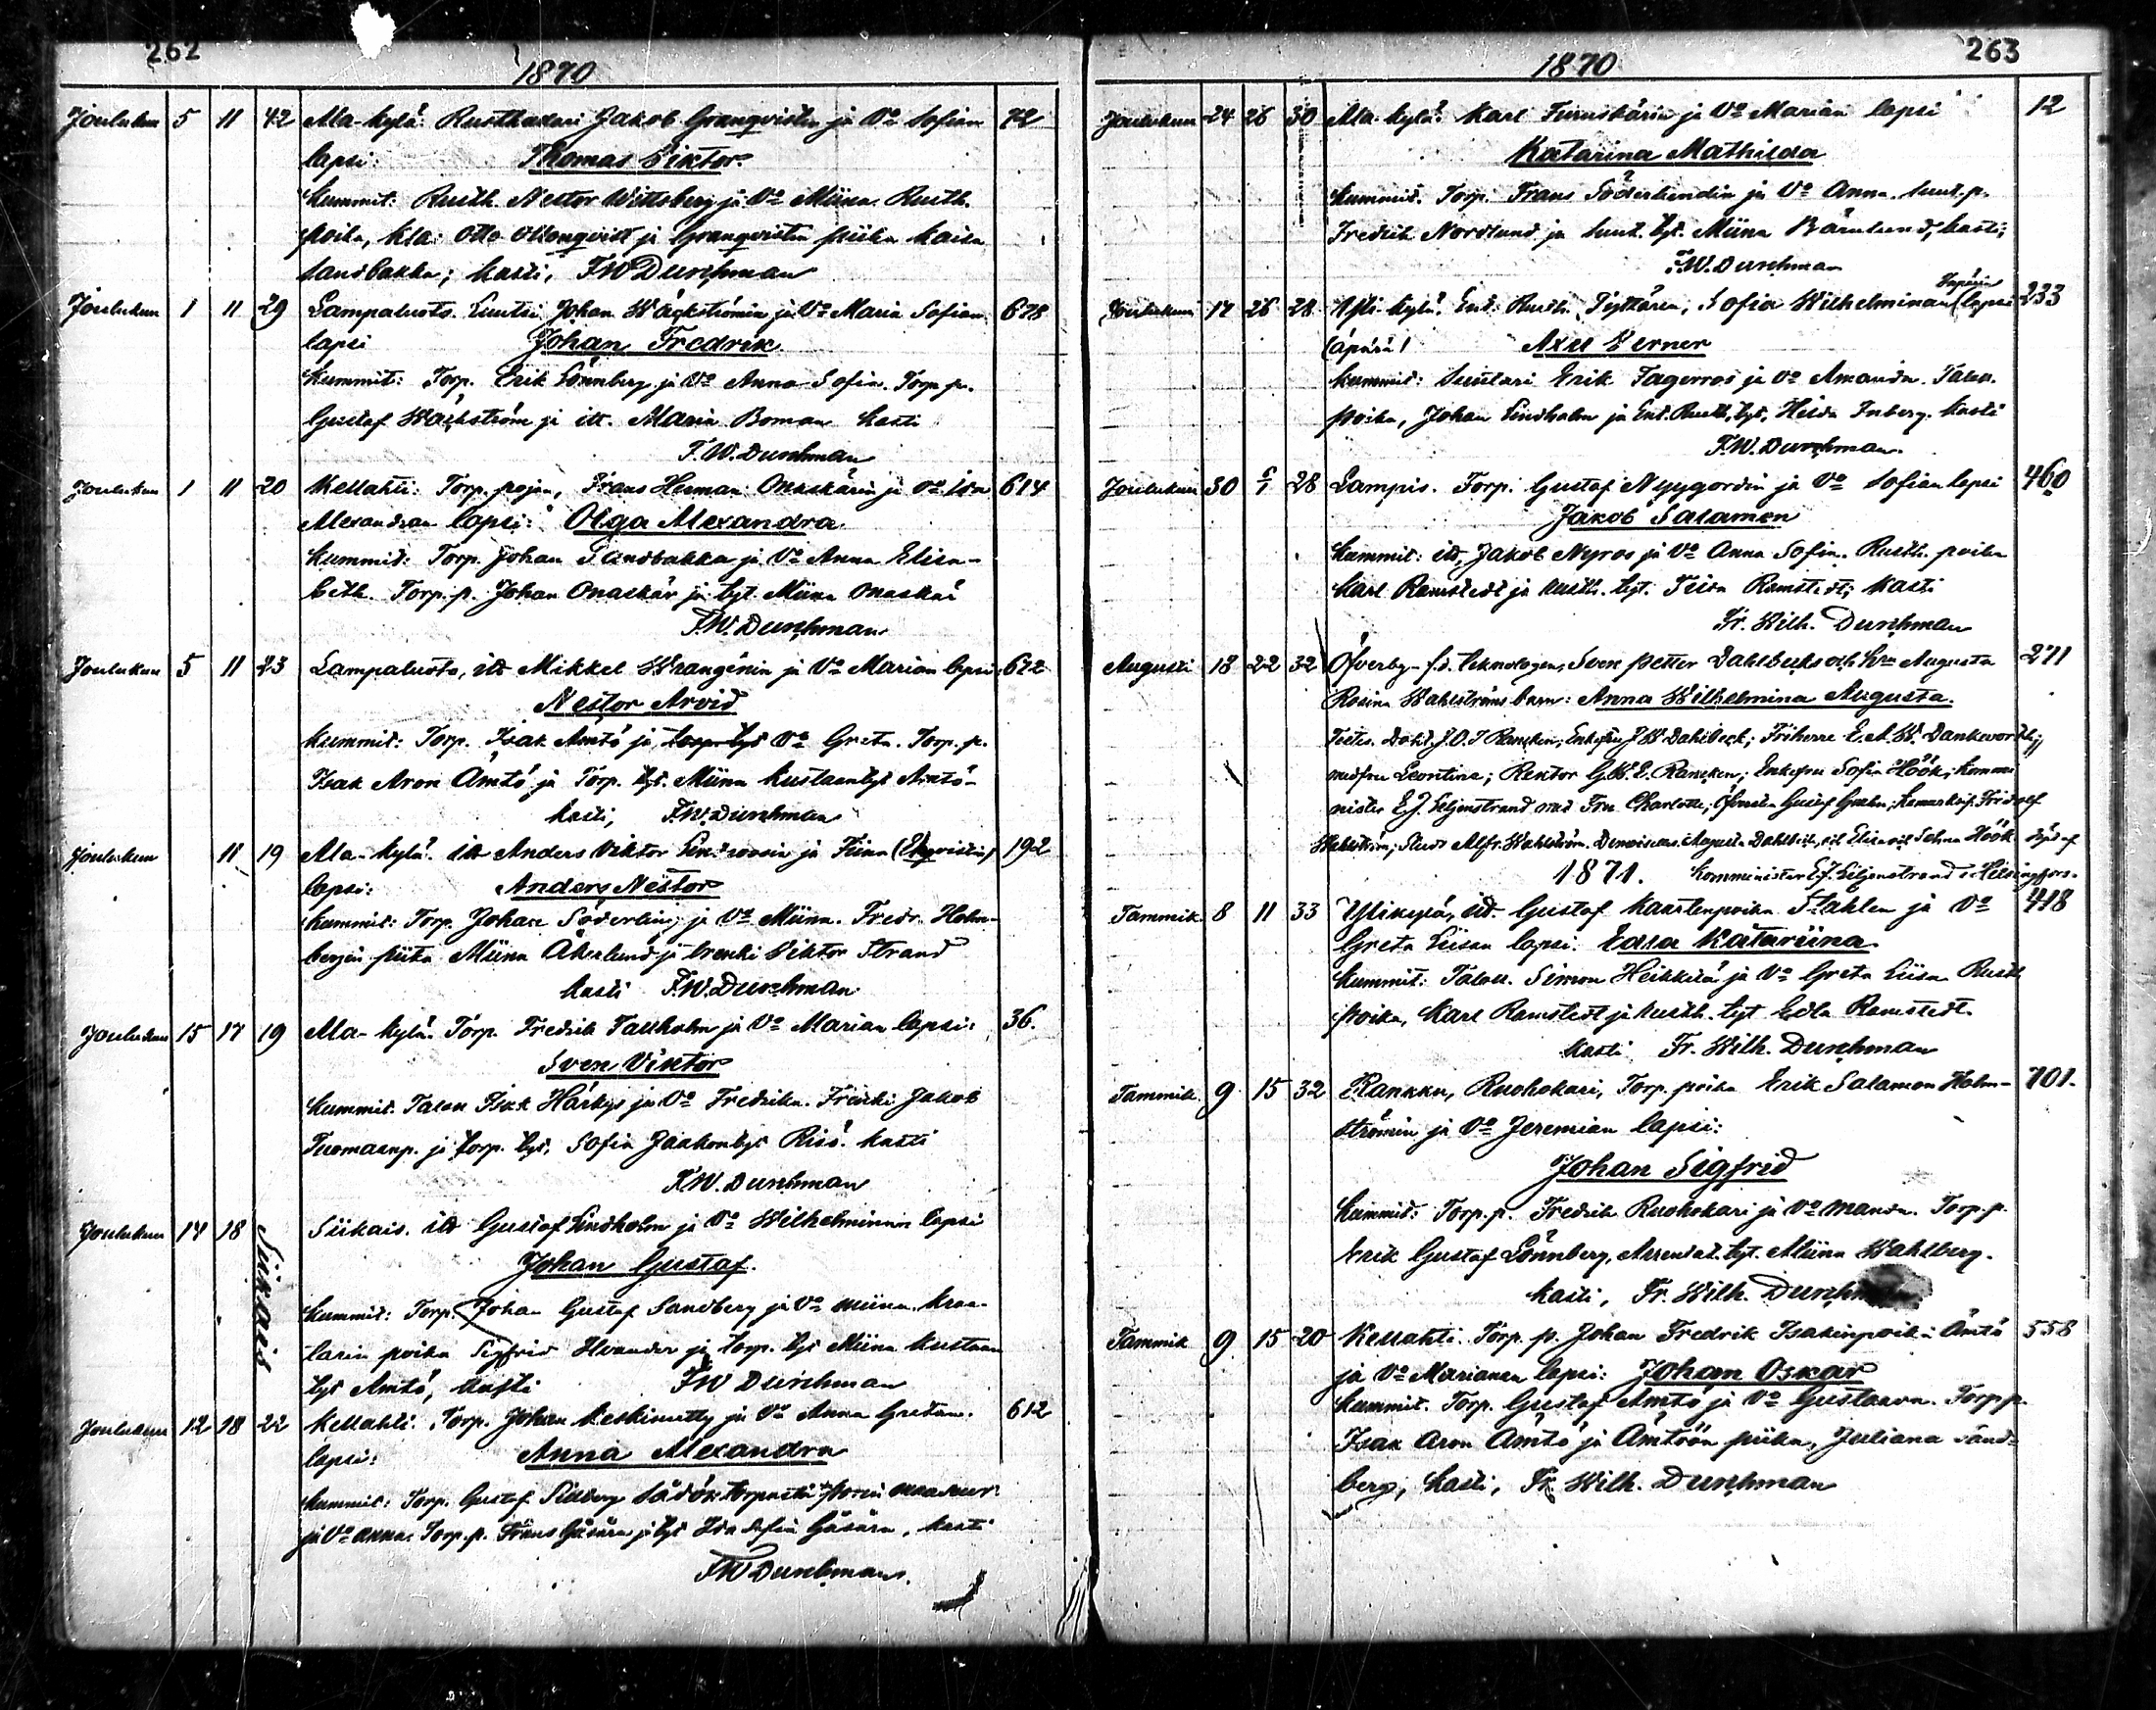 262
1870
Joulukun 5 11 42 Ala-kylä: Rusthaduri Jakob Granqvistin ja Vo Sofian 72
lapsi: Thomas Viktor.
Kummit: Rusth. Nestor Wittsberg ja Vo Miina. Rusth.
poika, Otto ja Granqvistin piika Kaisa
Sandbakka; kasti, F.W. Durchman
Joulukun 1 11 29 Lampaluoto. Luutsi Johan Wäckströmin ja Vo Maria Sofian 678
lapsi Johan Fredrik.
Kummit: Torp. Erik Lönnberg ja Vo Anna Sofia. Torp. p.
Gustaf Wäckström ja itt. Maria Boman kasti
F.W. Durchman
Joulukun 1 11 20 Kellahti: Torp. pojan, Frans Herman Onaskärin ja Vo Ida 614
Alexandran lapsi: Olga Alexandra.
Kummit: Torp. Johan Sandbakka ja Vo Anna Elisa-
beth. Torp. p. Johan Onaskär ja tyt. Miina Onaskär
F.W. Durchman
Joulukun 5 11 43 Lampaluoto, its. Mikkel Wrangénin ja Vo Marian lapsi 672
Nestor Arvid
Kummit: Torp. Isak Ämtö ja torp. tyt Vo Greta. Torp. p.
Isak Aron Ämtö ja Torp. tyt. Miina Kustaantyt Ämtö-
kasti, F.W. Durchman
Joulukun 11 19 Ala-kylä. its Anders Viktor ja Fiina 192
lapsi: Anders Nestor
Kummit: Torp. Johan Söderling ja Vo Miina. Fredr. Holm-
bergin piika Miina Åkerlund ja trenki Viktor Strand
kasti F.W. Durchman
Joulukun 15 17 19 Ala-kylä. Torp. Fredrik Tallholm ja Vo Marian lapsi: 36.
Sven Viktor
Kummit. Talon Isak Härkys ja Vo Fredrika. Trenki Jakob
Tuomaanp. ja torp. tyt. Sofia Jaakontyt Risö. kasti
F.W. Durchman
Joulukun 17 18 Siikais Siikais. its Gustaf Lindholm ja Vo Wilhelminan lapsi
Johan Gustaf.
Kummit: Torp. Johan Gustaf Sandberg ja Vo Miina.
poika Sigfrid ja torp. tyt Miina Kustaan
tyt Ämtö, kasti F.W. Durchman
Joulukun 12 18 22 Kellahti. Torp. Johan Keskinetty ja Vo Anna Gretan. 612
lapsi: Anna Alexandra
Kummit: Torp. Gustaf
ja Vo Anna. Torp. p. Frans Gåsära ja tyt Ida Sofia Gåsära, kasti
F.W. Durchman.
263
1870
Joulukun 24 26 30 Ala-kylä: Karl Furuskärin ja Vo Marian lapsi 12
Katarina Mathilda
Kummit. Torp. Frans Söderlundin ja Vo Anna. Luut. p.
Fredrik Nordlund ja Luut. tyt. Miina Bärnlund, kasti;
F.W. Durchman
Joulukun 17 26 28 Yli-kylä. Ent. Rusth. Tyttären, Sofia Wilhelminan lapsi 233
(äpärä) Axel Verner
Kummit: Suutari Erik Fagerros ja Vo Amanda. Talon.
poika, Johan Lindholm ja Ent. Rusth. tyt. Hilda Inberg. kasti
F.W. Durchman.
Joulukun 30 6/1 28 Lampis. Torp. Gustaf Nyygordin ja Vo Sofian lapsi 460
Jakob Salamon
Kummit: its, Jakob Nyros ja Vo Anna Sofia. Rusth. poika
Karl Ramstedt ja rusth. tyt. Ramstedt; kasti
Fr. Wilh. Durchman
Augusti 18 22 32 Öfverby- f.d. teknologen, Sven Petter Dahlbecks och hru Augusta 271
Rosina Wahlströms barn: Anna Wilhelmina Augusta.
Testes. Dokt. J.O.I. Rancken; Enkefru J.W. Dahlbeck; Friherre E.A.W. Dankwordt
med fru Leontina; Rektor G.W.E. Rancken; Enkefru Sofia Höök; Kommi
nister E.J. Seljenstrand med Fru Charlotte; Gustaf
Wahlström; Stud. Alfr. Wahlström. Augusta Dahlbeck, Selma Höök döpt af
1871. Komminister E.J. Seljenstrand i Helsingfors.
Tammik. 8 11 33 Ylikylä, its. Gustaf Kaarlenpoika Stahlen ja Vo 418
Greta Liisan lapsi. Edla Katariina.
Kummit: Talon. Simon Heikkilä ja Vo Greta Liisa. Rusth.
poika, Karl Ramstedt ja rusth. tyt Edla Ramstedt.
kasti Fr. Wilh. Durchman
Tammik. 9 15 32 Rankku, Ruohokari, Torp. poika Erik Salamon Holm- 701.
strömin ja Vo Jeremian lapsi:
Johan Sigfrid
Kummit: Torp. p. Fredrik Ruohokari ja Vo Manda. Torp. p.
Erik Gustaf Lönnberg, Arrendat. tyt. Miina Wahlberg.
kasti, Fr. Wilh. Durchman
Tammik 9 15 20 Kellahti. Torp. p. Johan Fredrik Isakinpoika Ämtö 558
ja Vo Marianen lapsi: Johan Oskar
Kummit. Torp. Gustaf Ämtö ja Vo Gustaava. Torp. p.
Isak Aron Ämtö ja Ämtöön piika, Juliana Sand-
berg, kasti, Fr. Wilh. Durchman